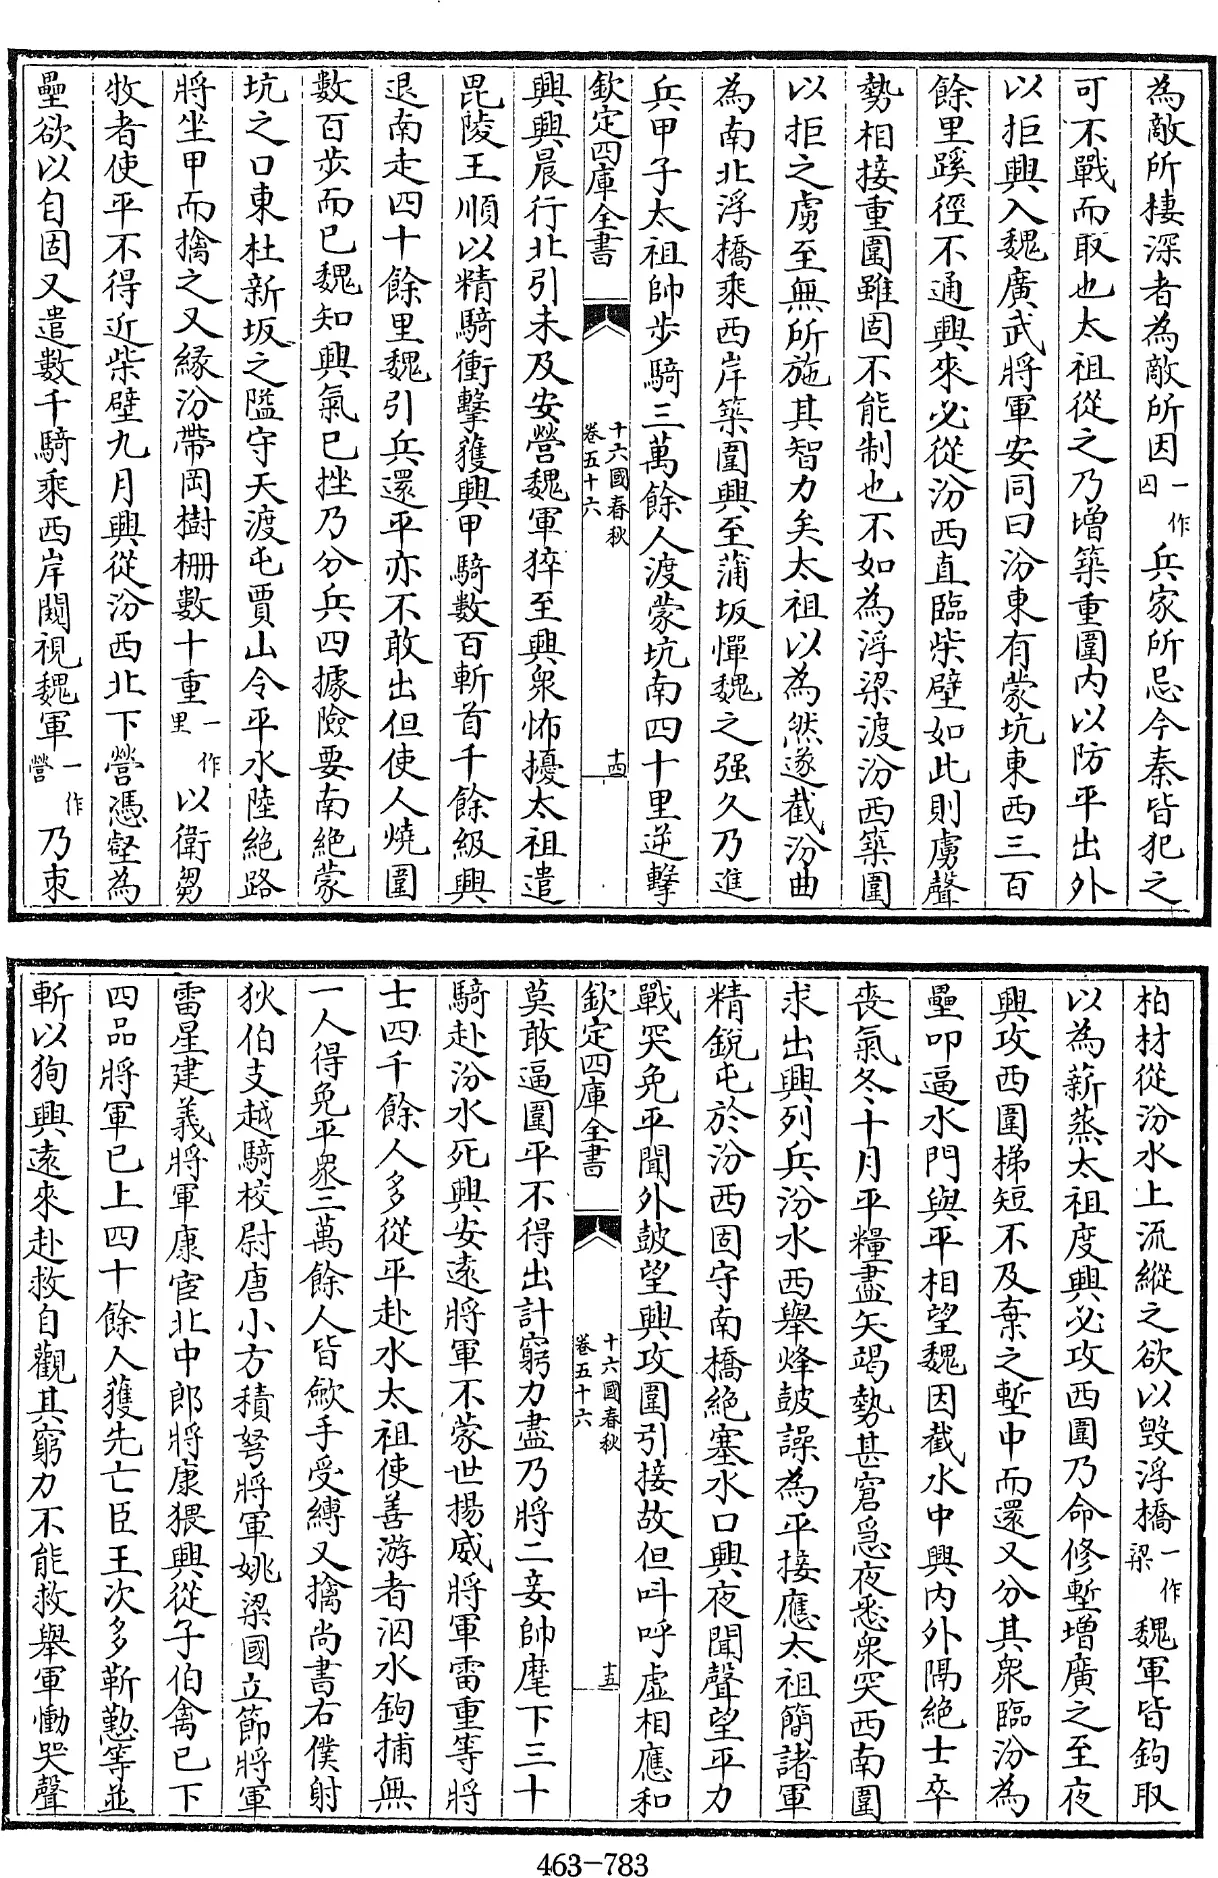 為敵所棲深者為敵所因一作囚兵家所忌今秦皆犯之
可不戰而取也太祖從之乃增築重圍内以防平出外
以拒興入魏廣武將軍安同曰汾東有蒙坑東西三百
餘里蹊徑不通興來必從汾西直臨柴壁如此則虜聲
勢相接重圍雖固不能制也不如為浮梁渡汾西築圍
以拒之虜至無所施其智力矣太祖以為然遂截汾曲
為南北浮橋乘西岸築圍興至蒲坂憚魏之强久乃進
兵甲子太祖帥步騎三萬餘人渡蒙坑南四十里逆擊
欽定四庫全書
十六國春秋
卷五十六
十四
興興晨行北引未及安營魏軍猝至興衆怖擾太祖遣
毘陵王順以精騎衝擊獲興甲騎數百斬首千餘級興
退南走四十餘里魏引兵還平亦不敢出但使人燒圍
數百步而已魏知興氣已挫乃分兵四據險要南絶蒙
坑之口東杜新坂之隘守天渡屯賈山令平水陸絶路
將坐甲而擒之又緣汾帶岡樹栅數十重一作里以衛芻
牧者使平不得近柴壁九月興從汾西北下營憑壑為
壘欲以自固又遣數千騎乘西岸闚視魏軍一作營乃束
柏材從汾水上流縱之欲以毁浮橋一作梁魏軍皆鉤取
以為薪蒸太祖度興必攻西圍乃命修塹增廣之至夜
興攻西圍梯短不及棄之塹中而還又分其衆臨汾為
壘叩逼水門與平相望魏因截水中興内外隔絶士卒
喪氣冬十月平糧盡矢竭勢甚窘急夜悉衆突西南圍
求出興列兵汾水西舉烽鼓譟為平接應太祖簡諸軍
精鋭屯於汾西固守南橋絶塞水口興夜聞聲望平力
戰突免平聞外鼓望興攻圍引接故但叫呼虛相應和
欽定四庫全書
十六國春秋
卷五十六
十五
莫敢逼圍平不得出計窮力盡乃將二妾帥麾下三十
騎赴汾水死興安遠將軍不蒙世揚威將軍雷重等將
士四千餘人多從平赴水太祖使善游者泅水鉤捕無
一人得免平衆三萬餘人皆歛手受縛又擒尚書右僕射
狄伯支越騎校尉唐小方積弩將軍姚梁國立節將軍
雷星建義將軍康宦北中郎將康猥興從子伯禽已下
四品將軍已上四十餘人獲先亡臣王次多靳懃等並
斬以狥興遠來赴救自觀其窮力不能救舉軍慟哭聲
463-783